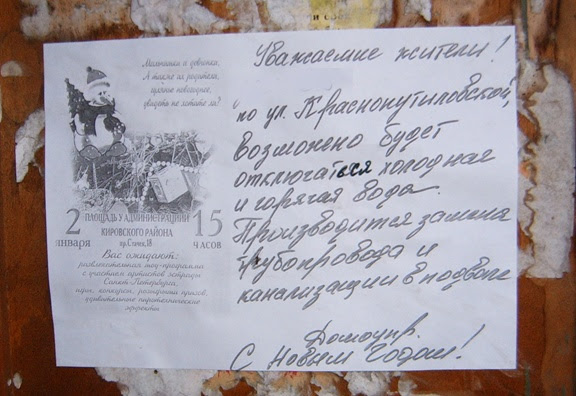 Мальчишки и девчонки,
А также их родители,
увидеть не хотите ли?
2 января
ПЛОЩАДЬ У АДМИНИСТРАЦИИ
КИРОВСКОГО РАЙОНА
пр.Стачек,18
15 часов
Вас ожидают:
развлекательная шоу-программа
с участием артистов эстрады
Санкт-Петербурга,
игры, конкурсы, розыгрыши призов,
удивительные пиротехнические
эффекты
Уважаемые жители!
"по ул. Краснопутиловской,
возможно будет
отключаться холодная
и горячая вода.
Производится замена
трубопровода и
канализации в подвале
Домоупр.
С Новым Годом!